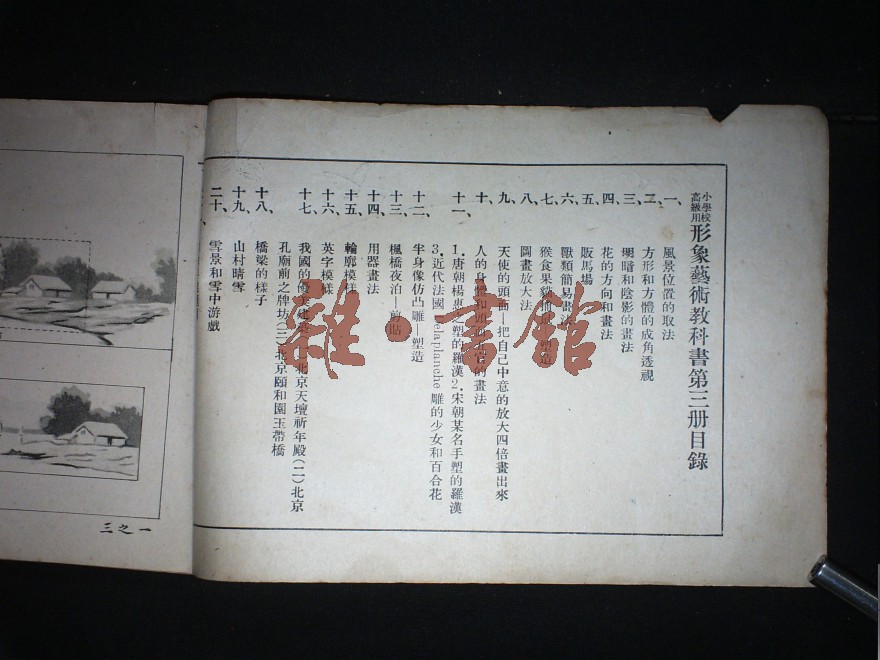 小學校
高級用
形象藝術教科書第三册目錄
一、風景位置的取法
二、方形和方體的成角透視
三、明暗和陰影的畫法
四、花的方向和畫法
五、販馬場
六、獸類簡易畫法
七、猴食果貓
八、圖畫放大法
九、天使的頭曲 把自己中意的放大四倍畫出來
十、人的身 的畫法
十一、1.唐朝楊惠 塑的羅漢 2.宋朝某名手塑的羅漢
3.近代法國Delaplanche雕的少女和百合花
十二、半身像仿凸雕—塑造
十三、楓橋夜泊—剪貼
十四、用器畫法
十五、輪廓模樣
十六、英字模樣
十七、我國的優美建 北京天壇祈年殿(二)北京
孔廟前之牌坊(三)北京頤和園玉帶橋
十八、橋梁的樣子
十九、山村晴雪
二十、雪景和雪中游戲
三之一
雜·書館